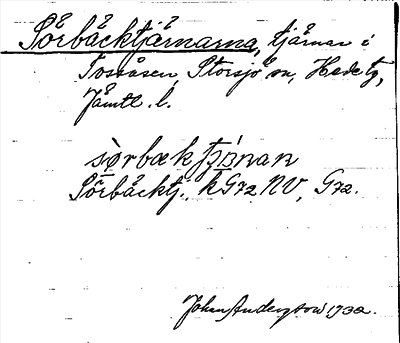 Sörbäcktjärnarna, tjärnar i
Tossåsen, Storsjö sn, Hede tg,
Jämtl. l.
Sörbäcktj., k G72 NV, G72.
Johan Anderson 1932.